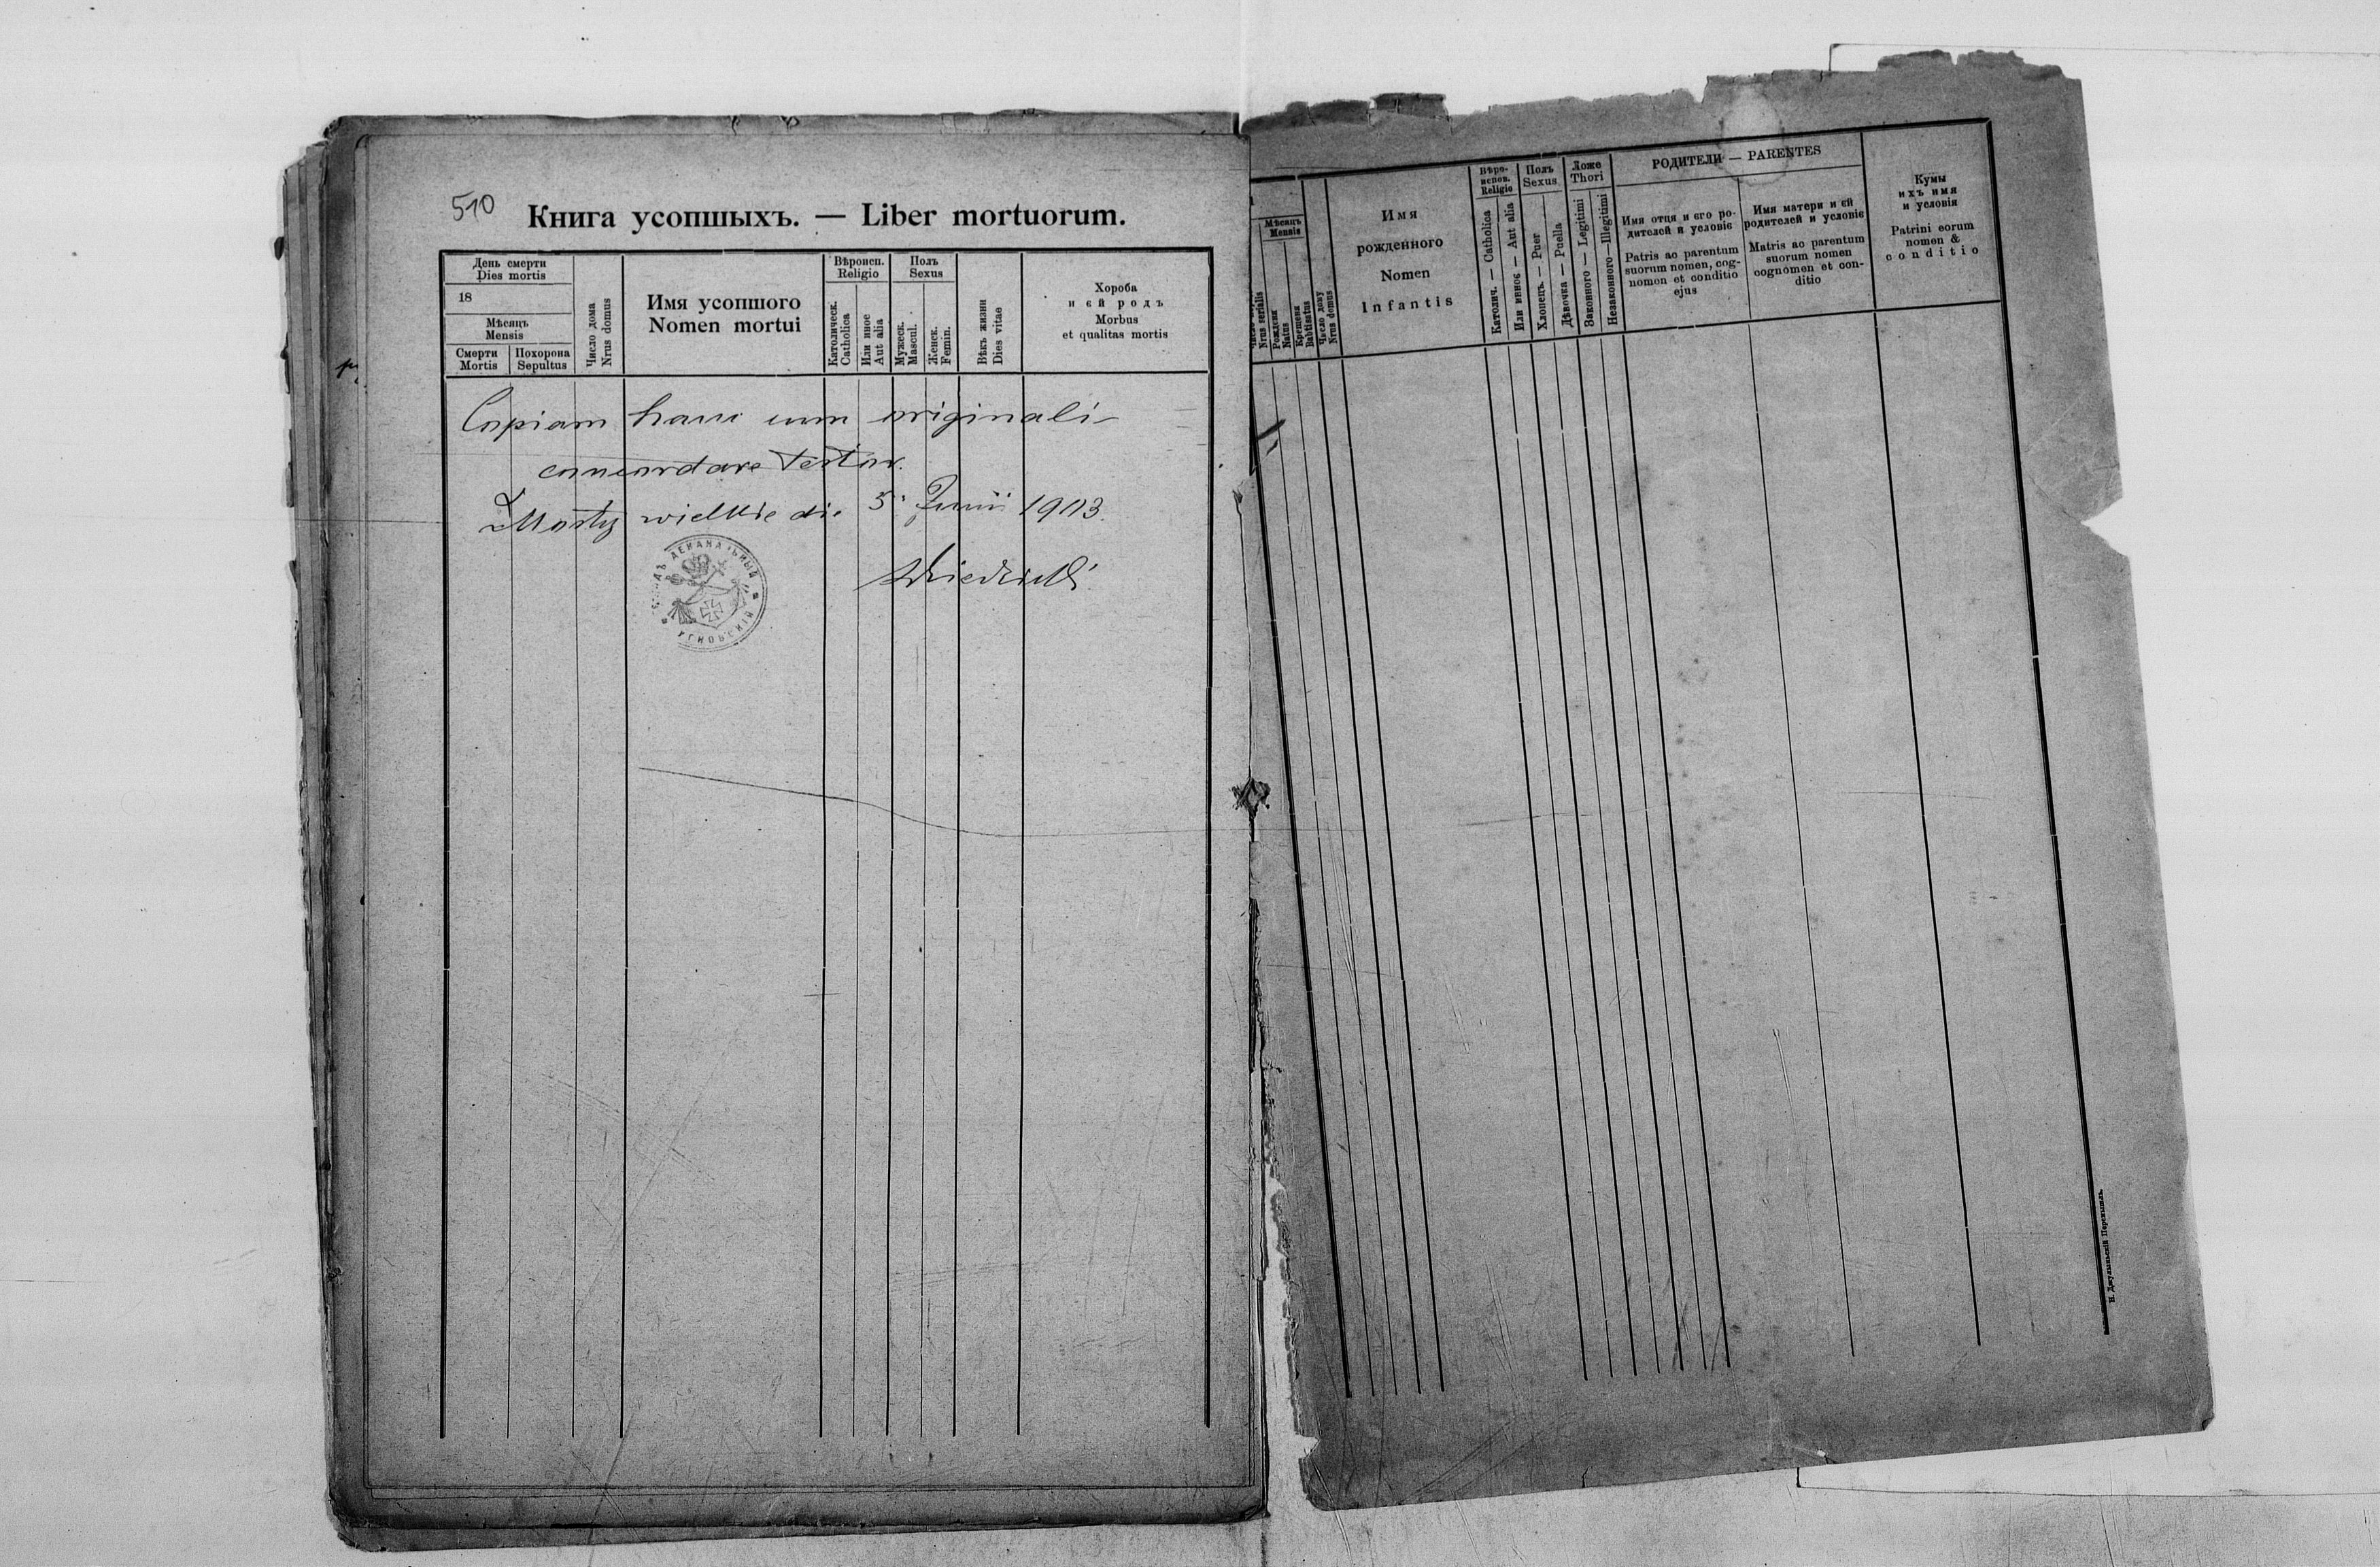 510
Книга усопшыхъ. — Liber mortuorum.
День смерти
Dies mortis
18
Мѣсяцъ
Mensis
Смерти
Mortis
Похорона
Sepultus
Число дома
Nrus domus
Имя усопшого
Nomen mortui
Вѣроисп.
Religio
Католическ.
Catholica
Или иное
Aut alia
Полъ
Sexus
Мужеск.
Mascul.
Женск.
Femin.
Вѣкъ жизни
Dies vitae
Хороба
и ей родъ
Morbus
et qualitas mortis
Copiam hanc cum originali
concordare testor.
Mosty wielkie die 5. Junii 1903
Мѣсяцъ
Mensis
Nrus serialis
Рожденя
Natus
Крещеня
Babtisatus
Число дому
Nrus domus
Имя
рожденного
Nomen
Infantis
Вѣро-
испов.
Religio
Католич. — Catholica
Или инноє — Aut alia
Полъ
Sexus
Хлопецъ. — Puer
Дѣвочка — Puella
Ложе
Thori
Законного — Legitimi
Незаконного — Illegitimi
РОДИТЕЛИ — PARENTES
Имя отця и єго ро-
дителей и условіє
Patris ac parentum
suorum nomen, cog-
nomen et conditio
ejus
Имя матери и єй
родителей и условіє
Matris ac parentum
suorum nomen
cognomen et con-
ditio
Кумы
ихъ имя
и условія
Patrini eorum
nomen &
conditio